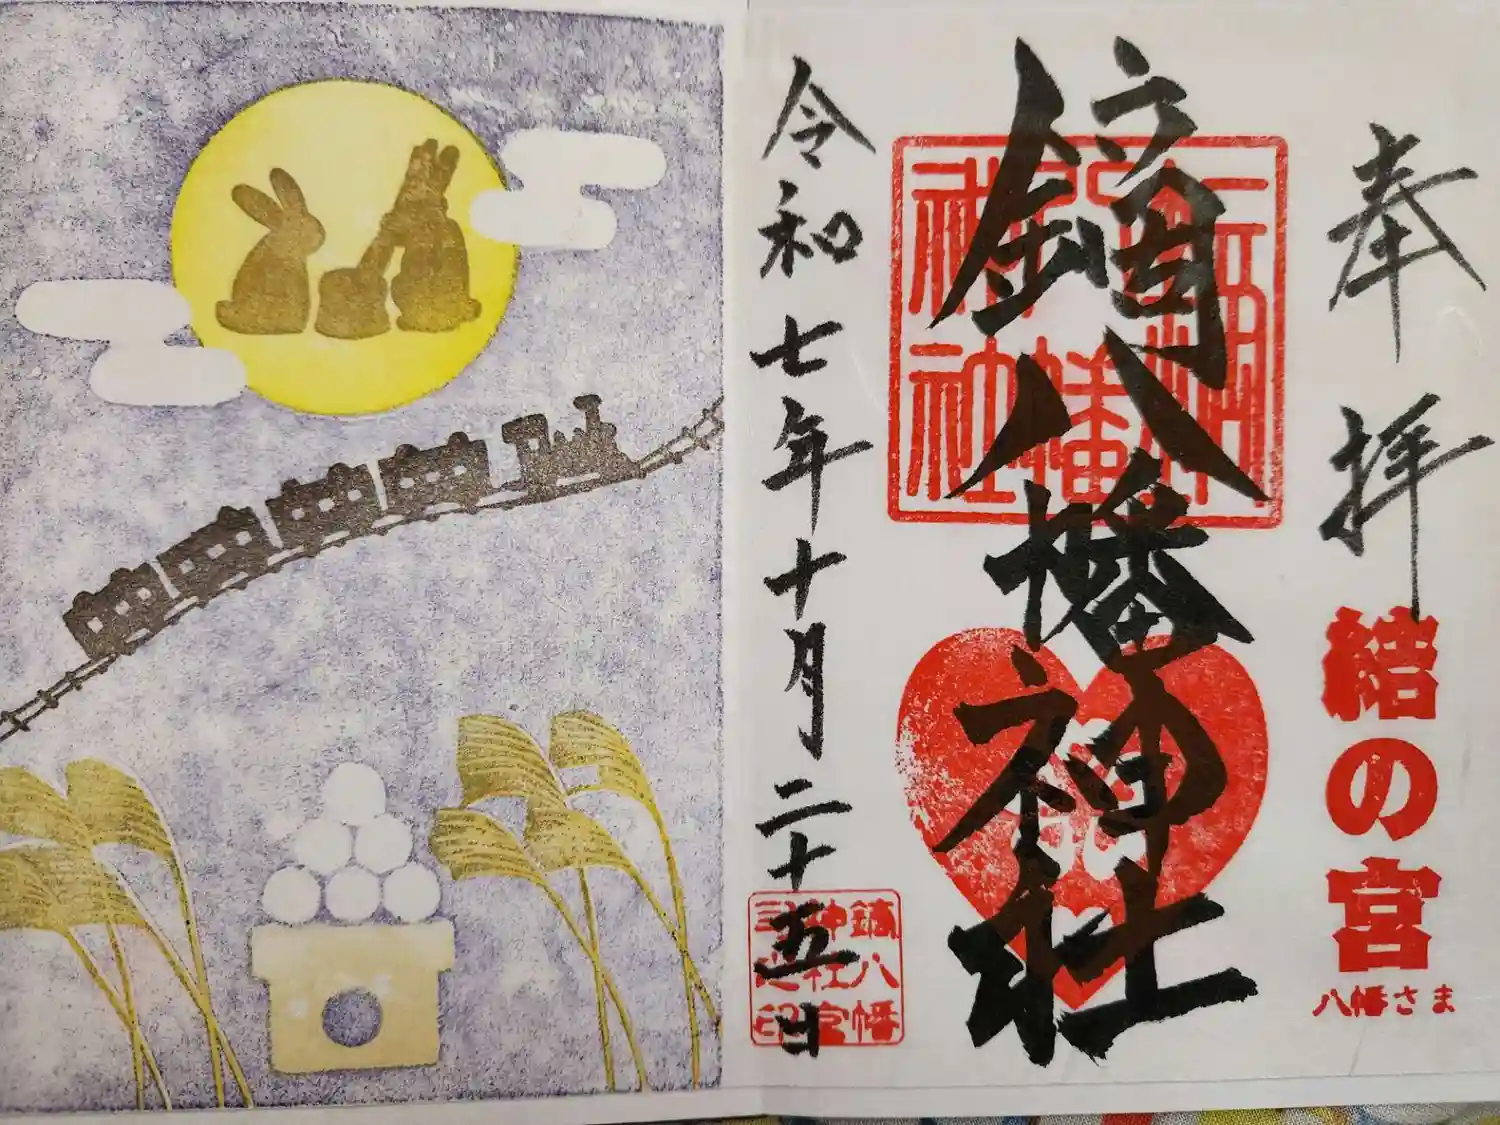 奉拝
結の宮
八幡さま
鏑八幡神社
令和七年十月二十五日
鏑八幡
神社宮
司之印